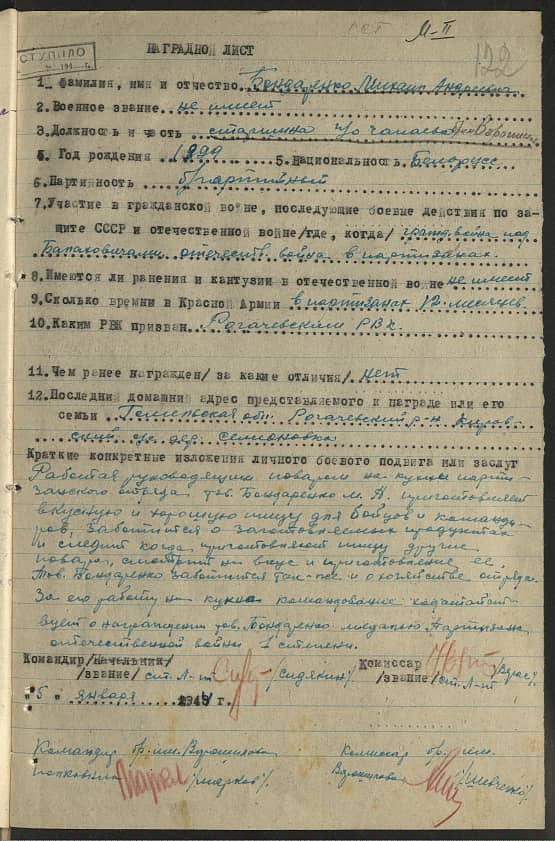 М-II
122
СТУПИЛО
НАГРАДНОЙ ЛИСТ
1. Фамилия, имя и отчество Бондаренко Михаил Андреевич
2. Военное звание не имеет
3. Должность и часть старшина п/о Чапаева бр. им Ворошилова
4. Год рождения 1899 5. Национальность Белорусс
6. Партийность б/партийный
7. Участие в гражданской войне, последующие боевые действия по за-
щите СССР и отечественной войне/где, когда/ гражд. война под
Барановичами отечеств. война в партизанах.
8. Имеются ли ранения и кантузии в отечественной войне не имеет
9. Сколько времни в Красной Армии в партизанах 12 месяцев.
10. Каким РВК призван Рогачевским РВК.
11. Чем ранее награжден/ за какие отличия/ нет
12. Последний домашний адрес представляемого к награде или его
семьи Гомельская обл. Рогачевский р-н
дер. Семеновка
Краткие конкретные изложения личного боевого подвига или заслуг
Работая руководящим поваром на кухни парти-
занского отряда тов. Бондаренко М. А. приготовляет
вкусную и хорошую пищу для бойцов и команди-
ров, заботится о заготовляемых продуктах
и следит когда, приготовляют пищу другие
повара, смотрит на вкус и приготовление её.
Тов. Бондаренко заботится так-же и о хозяйстве отряда.
За его работу на кухне командование ходатайст-
вует о награждении тов. Бондаренко медалью Партизана
отечественной войны 2 степени.
Командир/начальник/ Комиссар
/звание/ ст. Л-нт /Сидякин/ /звание/ ст. Л-нт
"5" января 1944 г.
Командир бр. им. Ворошилова Комиссар бр. им.
/Марков/ Ворошилова /Шевченко/